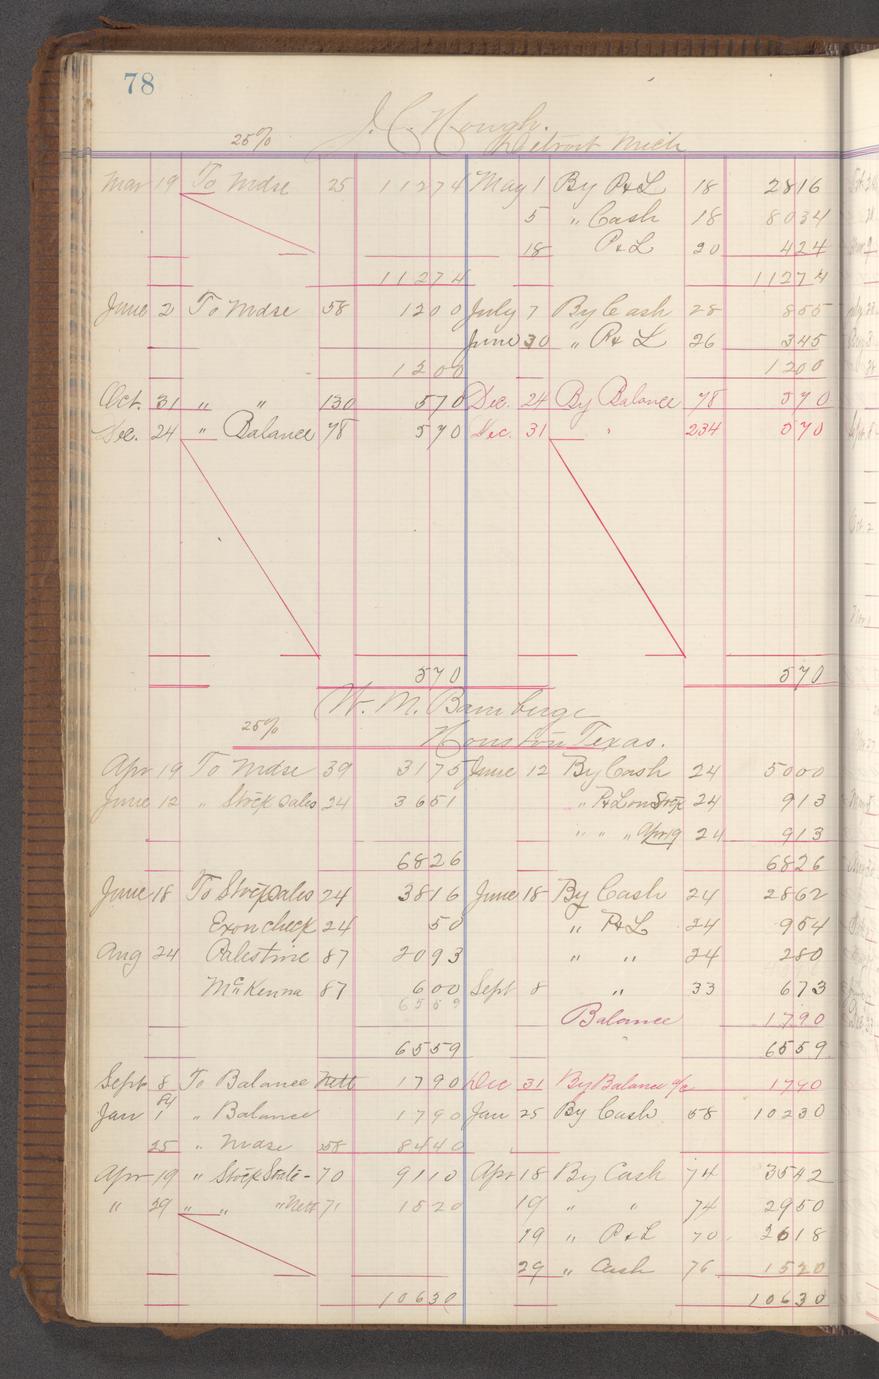 78
J. C. Hough.
25% Detroit Mich
Mar 19 To Mdse 25 11274 May 1 By P&L 18 2816
5 " Cash 18 8034
18 P&L 20 424
11274 11274
June 2 To Mdse 58 1200 July 7 By Cash 28 855
June 30 " P&L 26 345
1200 1200
Oct. 31 " " 130 570 Dec. 24 By Balance 78 570
Dec. 24 " Balance 78 570 Dec. 31 " 234 570
570 570
W. M. Bamberge
25% Houston Texas.
Apr 19 To Mdse 39 3175 June 12 By Cash 24 5000
June 12 " Stock Sales 24 3651 " P&L on Stock 24 913
" " " Apr 19 24 913
6826 6826
June 18 To Stock Sales 24 3816 June 18 By Cash 24 2862
Ex on check 24 50 " P&L 24 954
Aug 24 Palestine 87 2093 " " 24 280
McKenna 87 600 Sept 8 " 33 673
6559 Balance 1790
6559 6559
Sept 8 To Balance Nett 1790 Dec 31 By Balance a/c 1790
Jan 1 " Balance 1790 Jan 25 By Cash 58 10230
25 " Mdse 58 8440
Apr 19 " Stock State - 70 9110 Apr 18 By Cash 74 3542
" 29 " " " Nett 71 1520 19 " " 74 2950
19 " P&L 70 2618
29 " Cash 76 1520
10630 10630